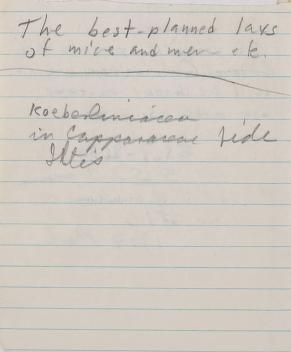 The best-planned lays
of mice and men etc.
Koeberliniacea
in Capparaceae fide
Iltis